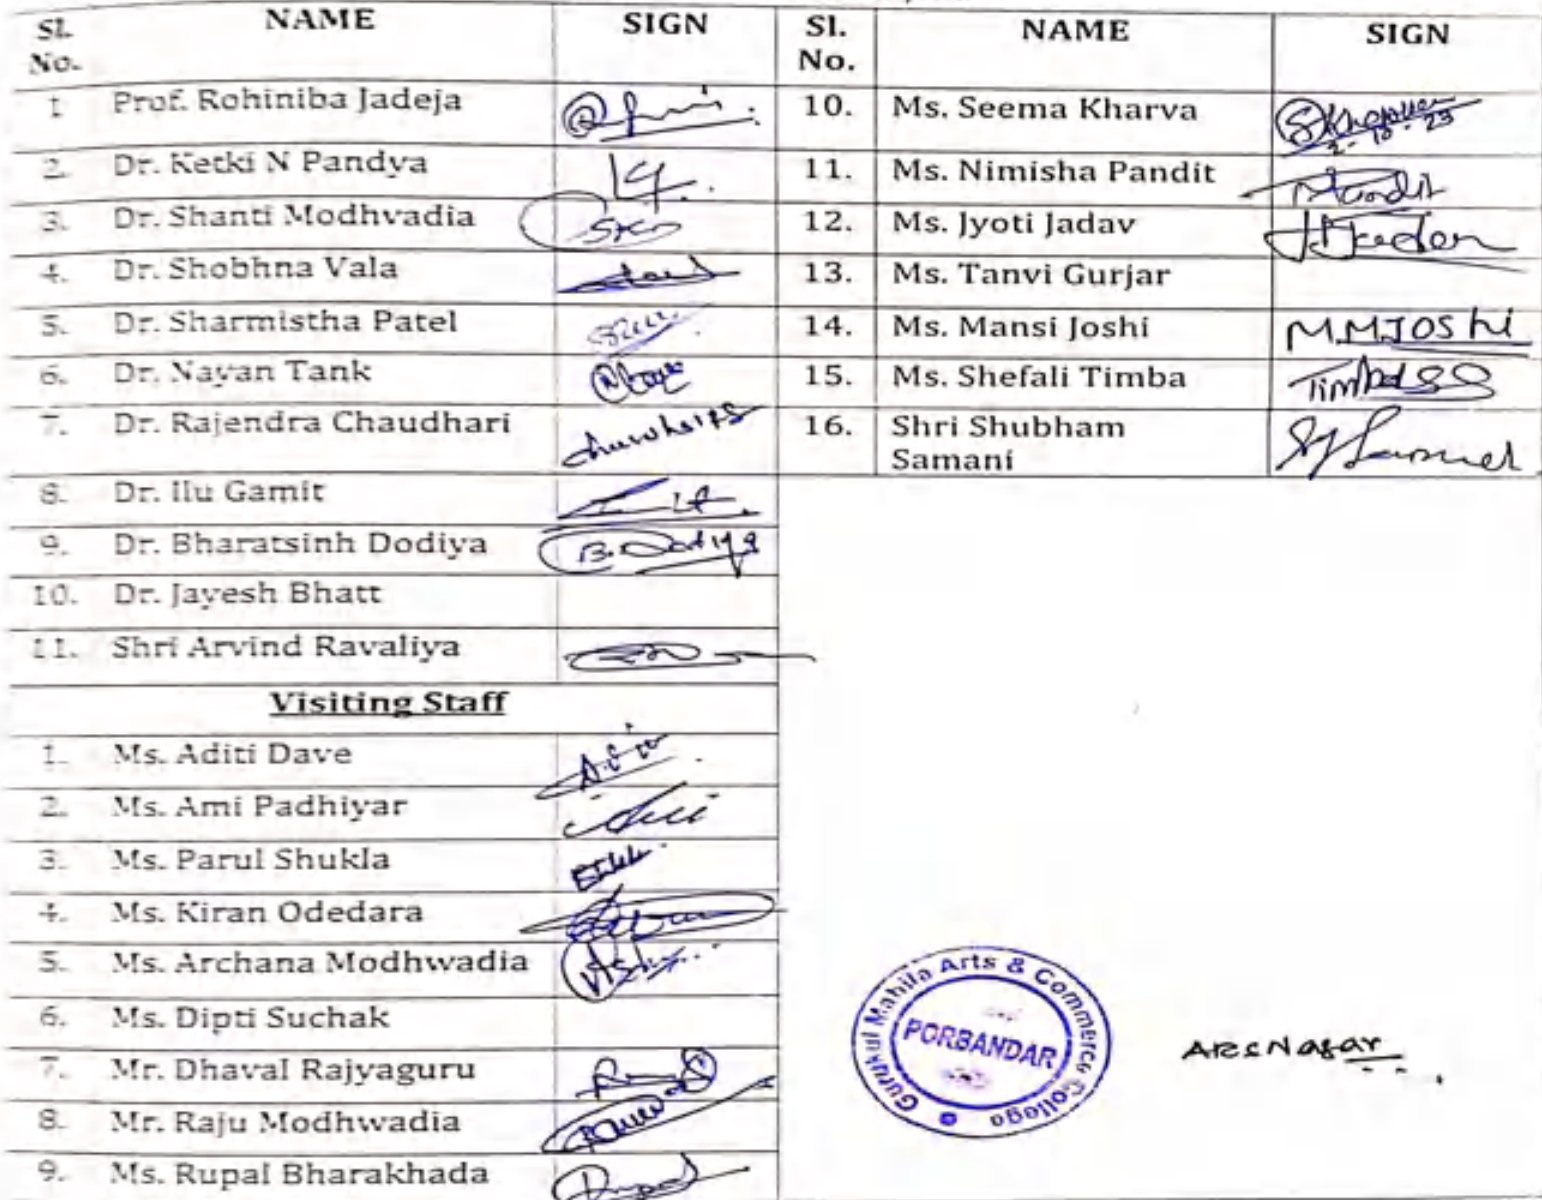 Sl. No. NAME SIGN
1 Prof. Rohiniba Jadeja
2. Dr. Ketki N Pandya
3. Dr. Shanti Modhvadia
4. Dr. Shobhna Vala
5. Dr. Sharmistha Patel
6. Dr. Nayan Tank
7. Dr. Rajendra Chaudhari
8. Dr. Ilu Gamit
9. Dr. Bharatsinh Dodiya B. Dodiya
10. Dr. Jayesh Bhatt
11. Shri Arvind Ravaliya
Visiting Staff
1. Ms. Aditi Dave
2. Ms. Ami Padhiyar
3. Ms. Parul Shukla
4. Ms. Kiran Odedara
5. Ms. Archana Modhwadia
6. Ms. Dipti Suchak
7. Mr. Dhaval Rajyaguru
8. Mr. Raju Modhwadia
9. Ms. Rupal Bharakhada
Sl. No. NAME SIGN
10. Ms. Seema Kharva
2-10-23
11. Ms. Nimisha Pandit
12. Ms. Jyoti Jadav
13. Ms. Tanvi Gurjar
14. Ms. Mansi Joshi M.M.Joshi
15. Ms. Shefali Timba
16. Shri Shubham
Samani
Gurukul Mahila Arts & Commerce College
PORBANDAR